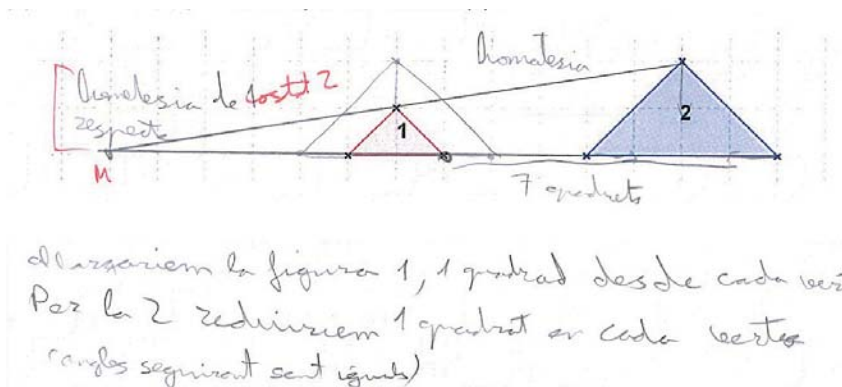 Homotesia
Homotesia de costat 2
respecte
1
2
M
7 quadrets
Allargariem la figura 1, 1 quadrad desde cada ver
Per la 2 reduiriem 1 quadrat en cada vertex
(angles seguirant sent iguals)